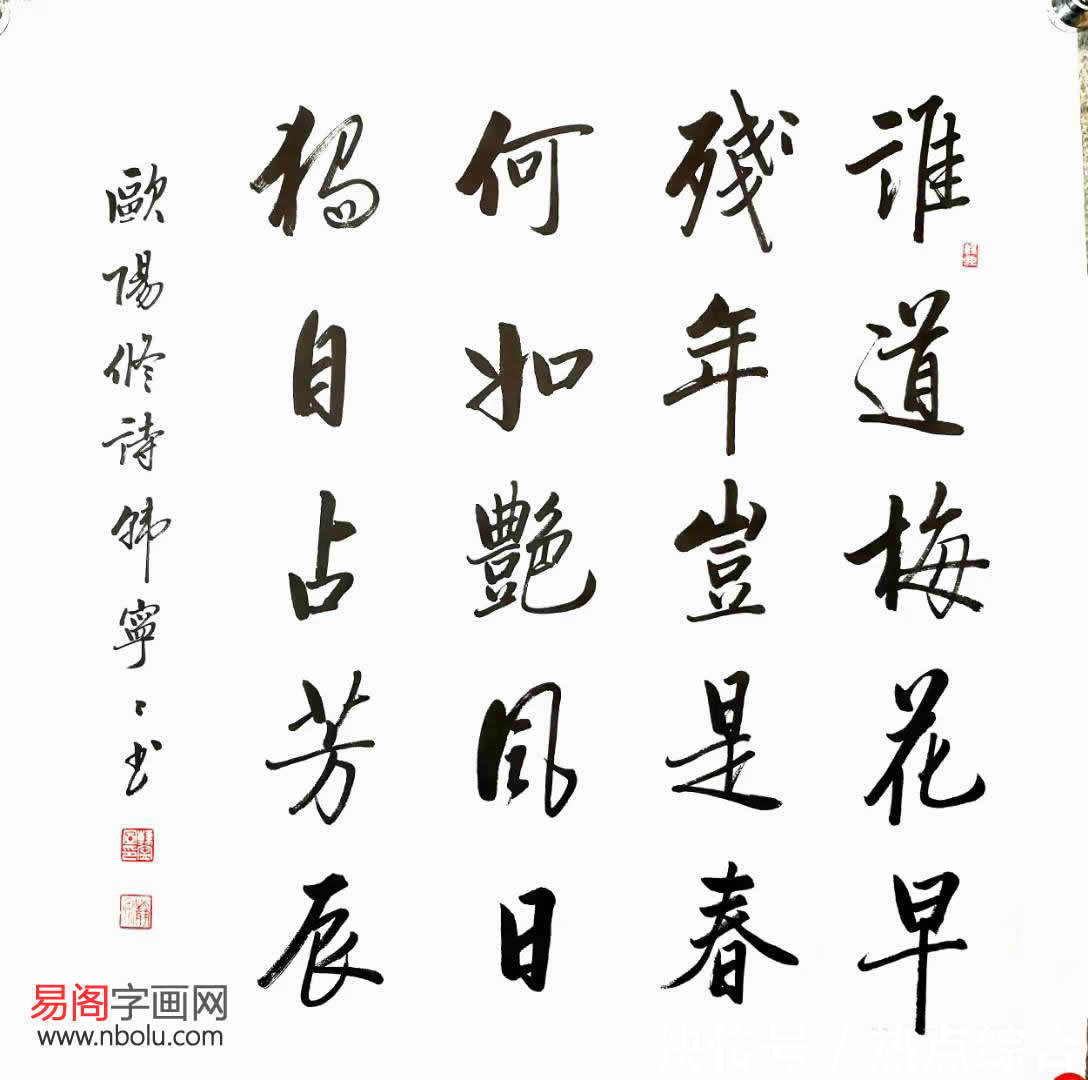 誰道梅花早
殘年豈是春
何如艷風日
獨自占芳辰
歐陽修詩韩寧〻书
易阁字画网
www.nbolu.com
快传号 / 热点综合